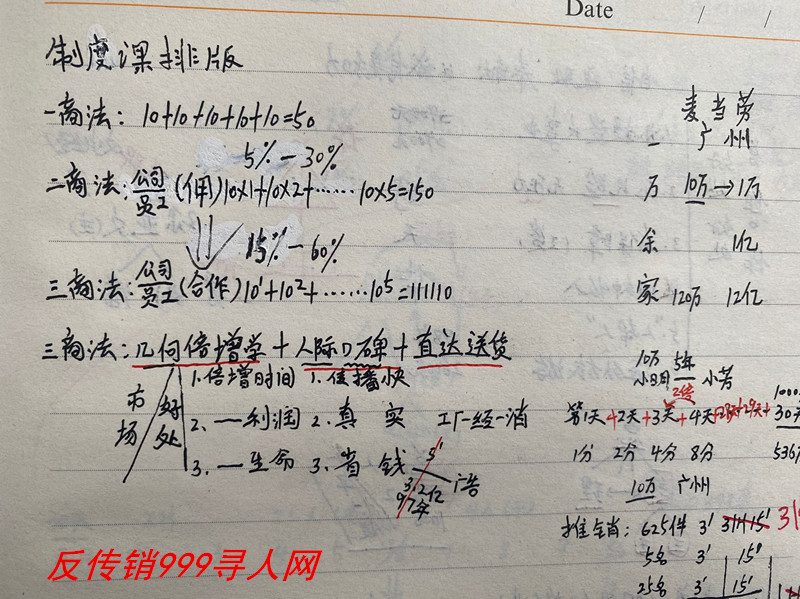 Date / /
制度课排版
一商法: 10+10+10+10+10=50
5%-30%
二商法: 公司 员工 (佣) 10×1+10×2+······10×5=150
15%-60%
三商法: 公司 员工 (合作) 10¹+10²+······10⁵=111110
三商法: 几何倍增学+人际口碑+直达送货
市场 好处
1.倍增时间 1.传播快
2.一利润 2.真实
3.一生命 3.省钱
工厂-经-消
3'
3.2亿
97年
广告
麦当劳
一 广州
万 10万→1万
余 1亿
家 120万 12亿
10万 5年
小日月 2倍 小芳
第1天+2天+3天+4天+28天+29天+30天
1分 2分 4分 8分 536万
10万 广州
推销: 625件 3' 15'
5名 3' 15'
25名 3' 15'
反传销999寻人网